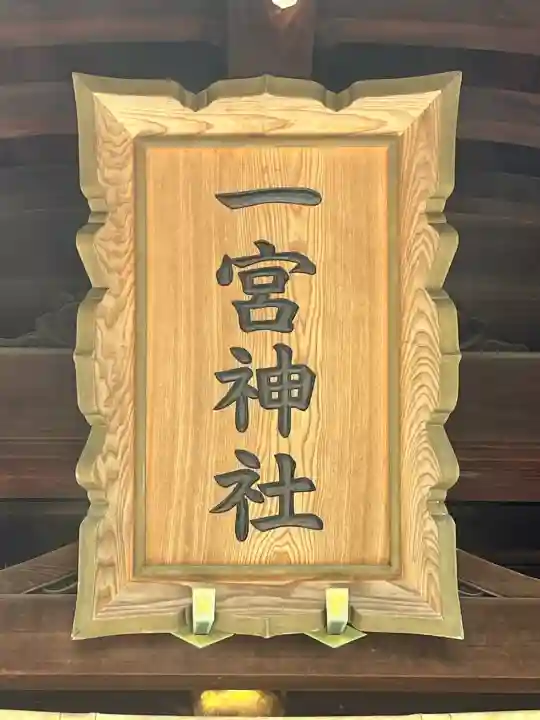 一宮神社